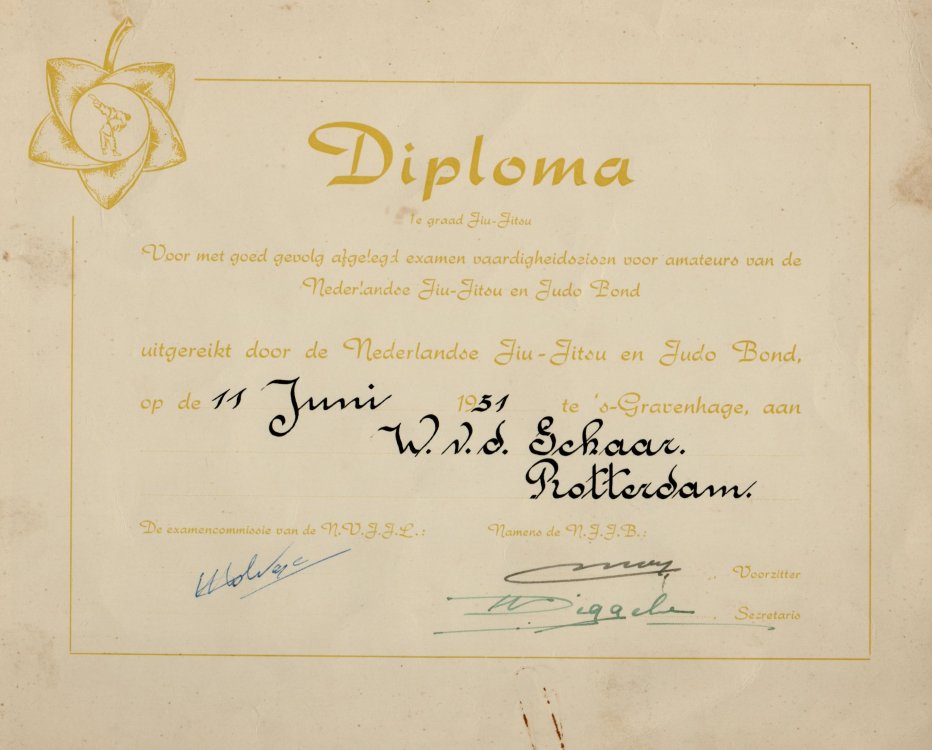 Diploma
1e graad Jiu-Jitsu
Voor met goed gevolg afgelegd examen vaardigheidseisen voor amateurs van de
Nederlandse Jiu-Jitsu en Judo Bond
uitgereikt door de Nederlandse Jiu-Jitsu en Judo Bond,
op de 11 Juni 1951 te 's-Gravenhage, aan
W. v. d. Schaar.
Rotterdam.
De examencommissie van de N.V.J.J.L.: Namens de N.J.J.B.:
Voorzitter
Secretaris